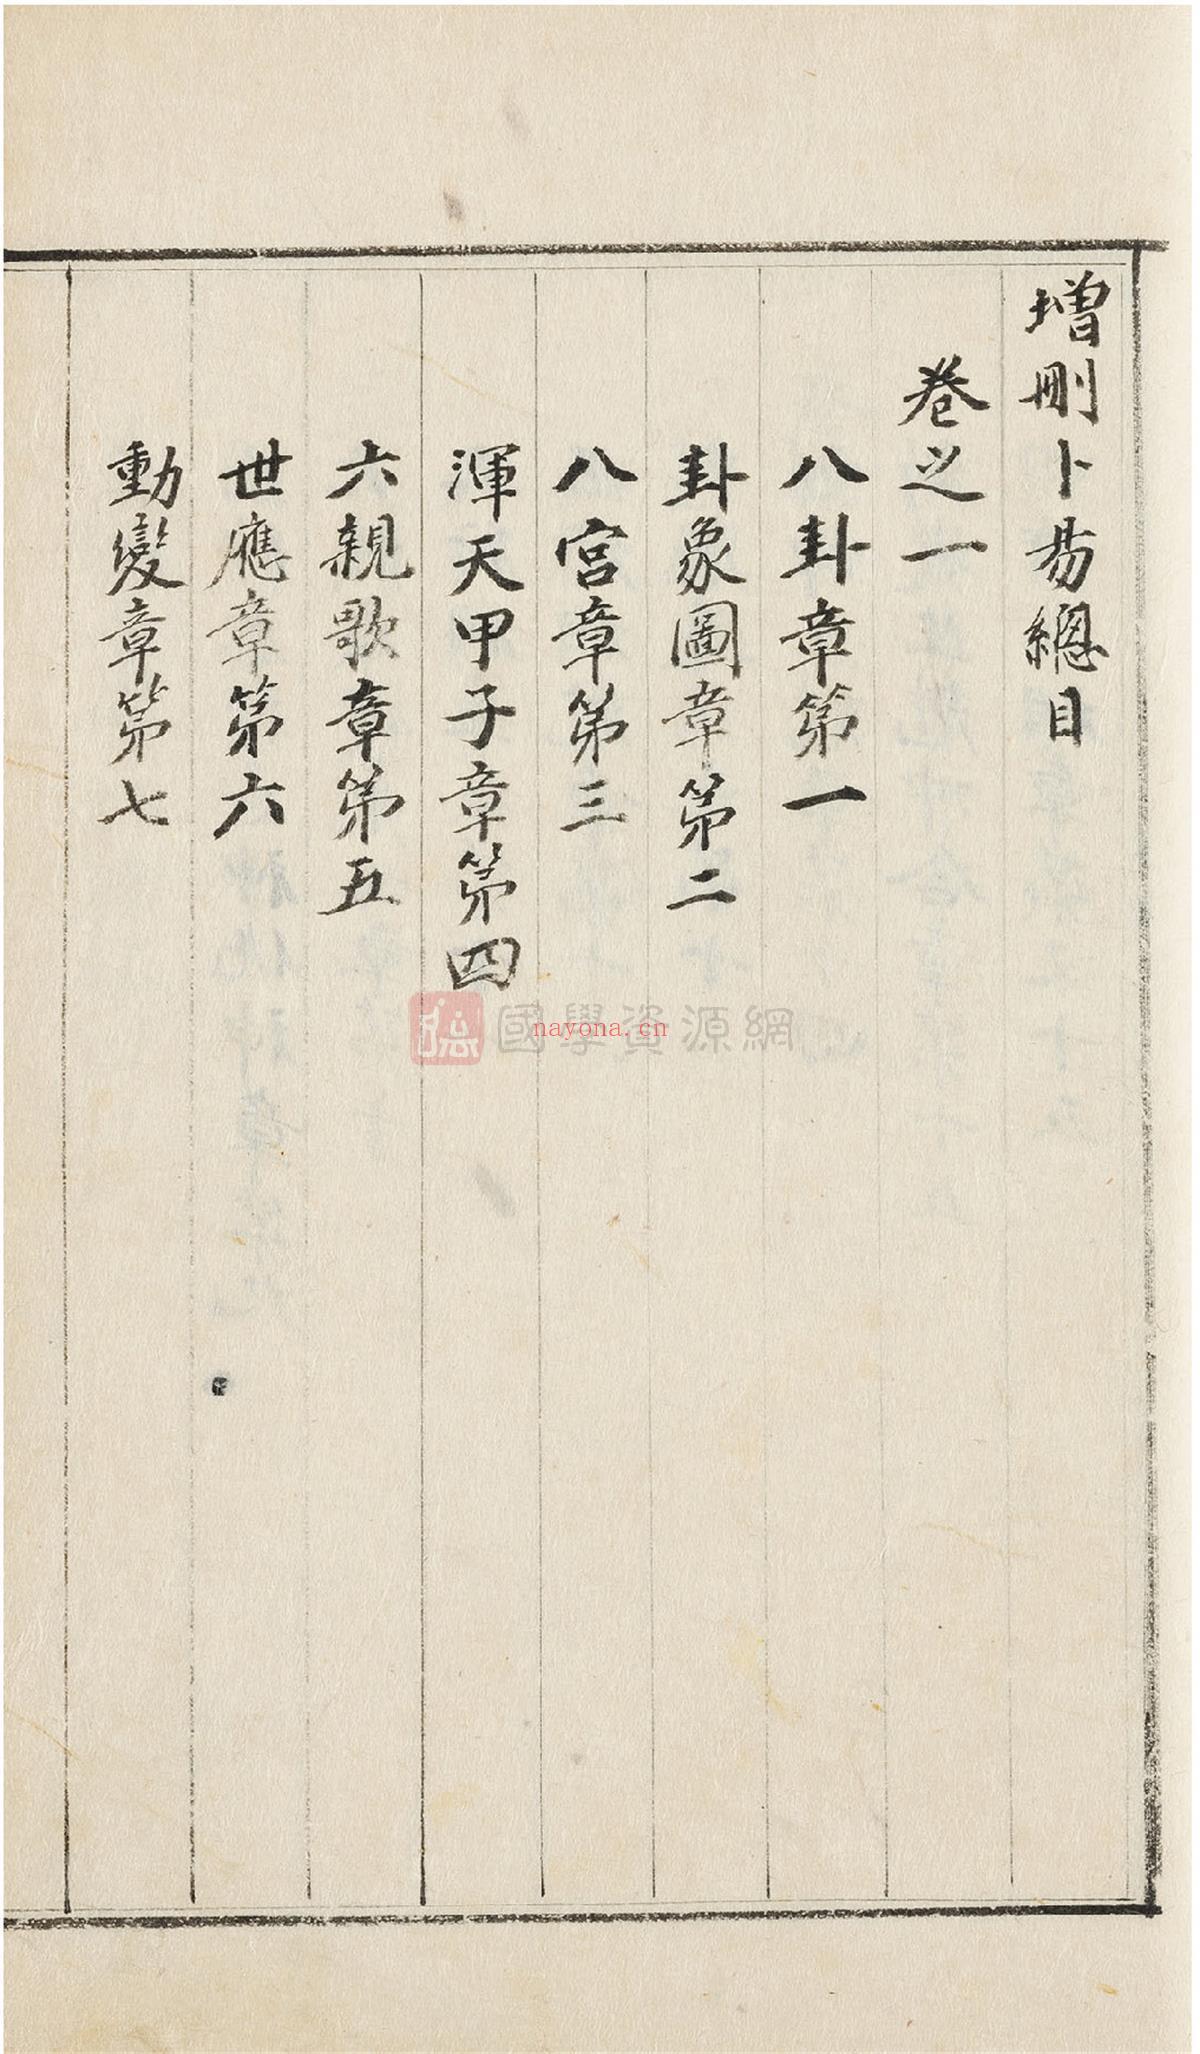 增刪卜易總目
卷之一
八卦章第一
卦象圖章第二
八宮章第三
渾天甲子章第四
六親歌章第五
世應章第六
動變章第七
國學資源網
nayona.cn